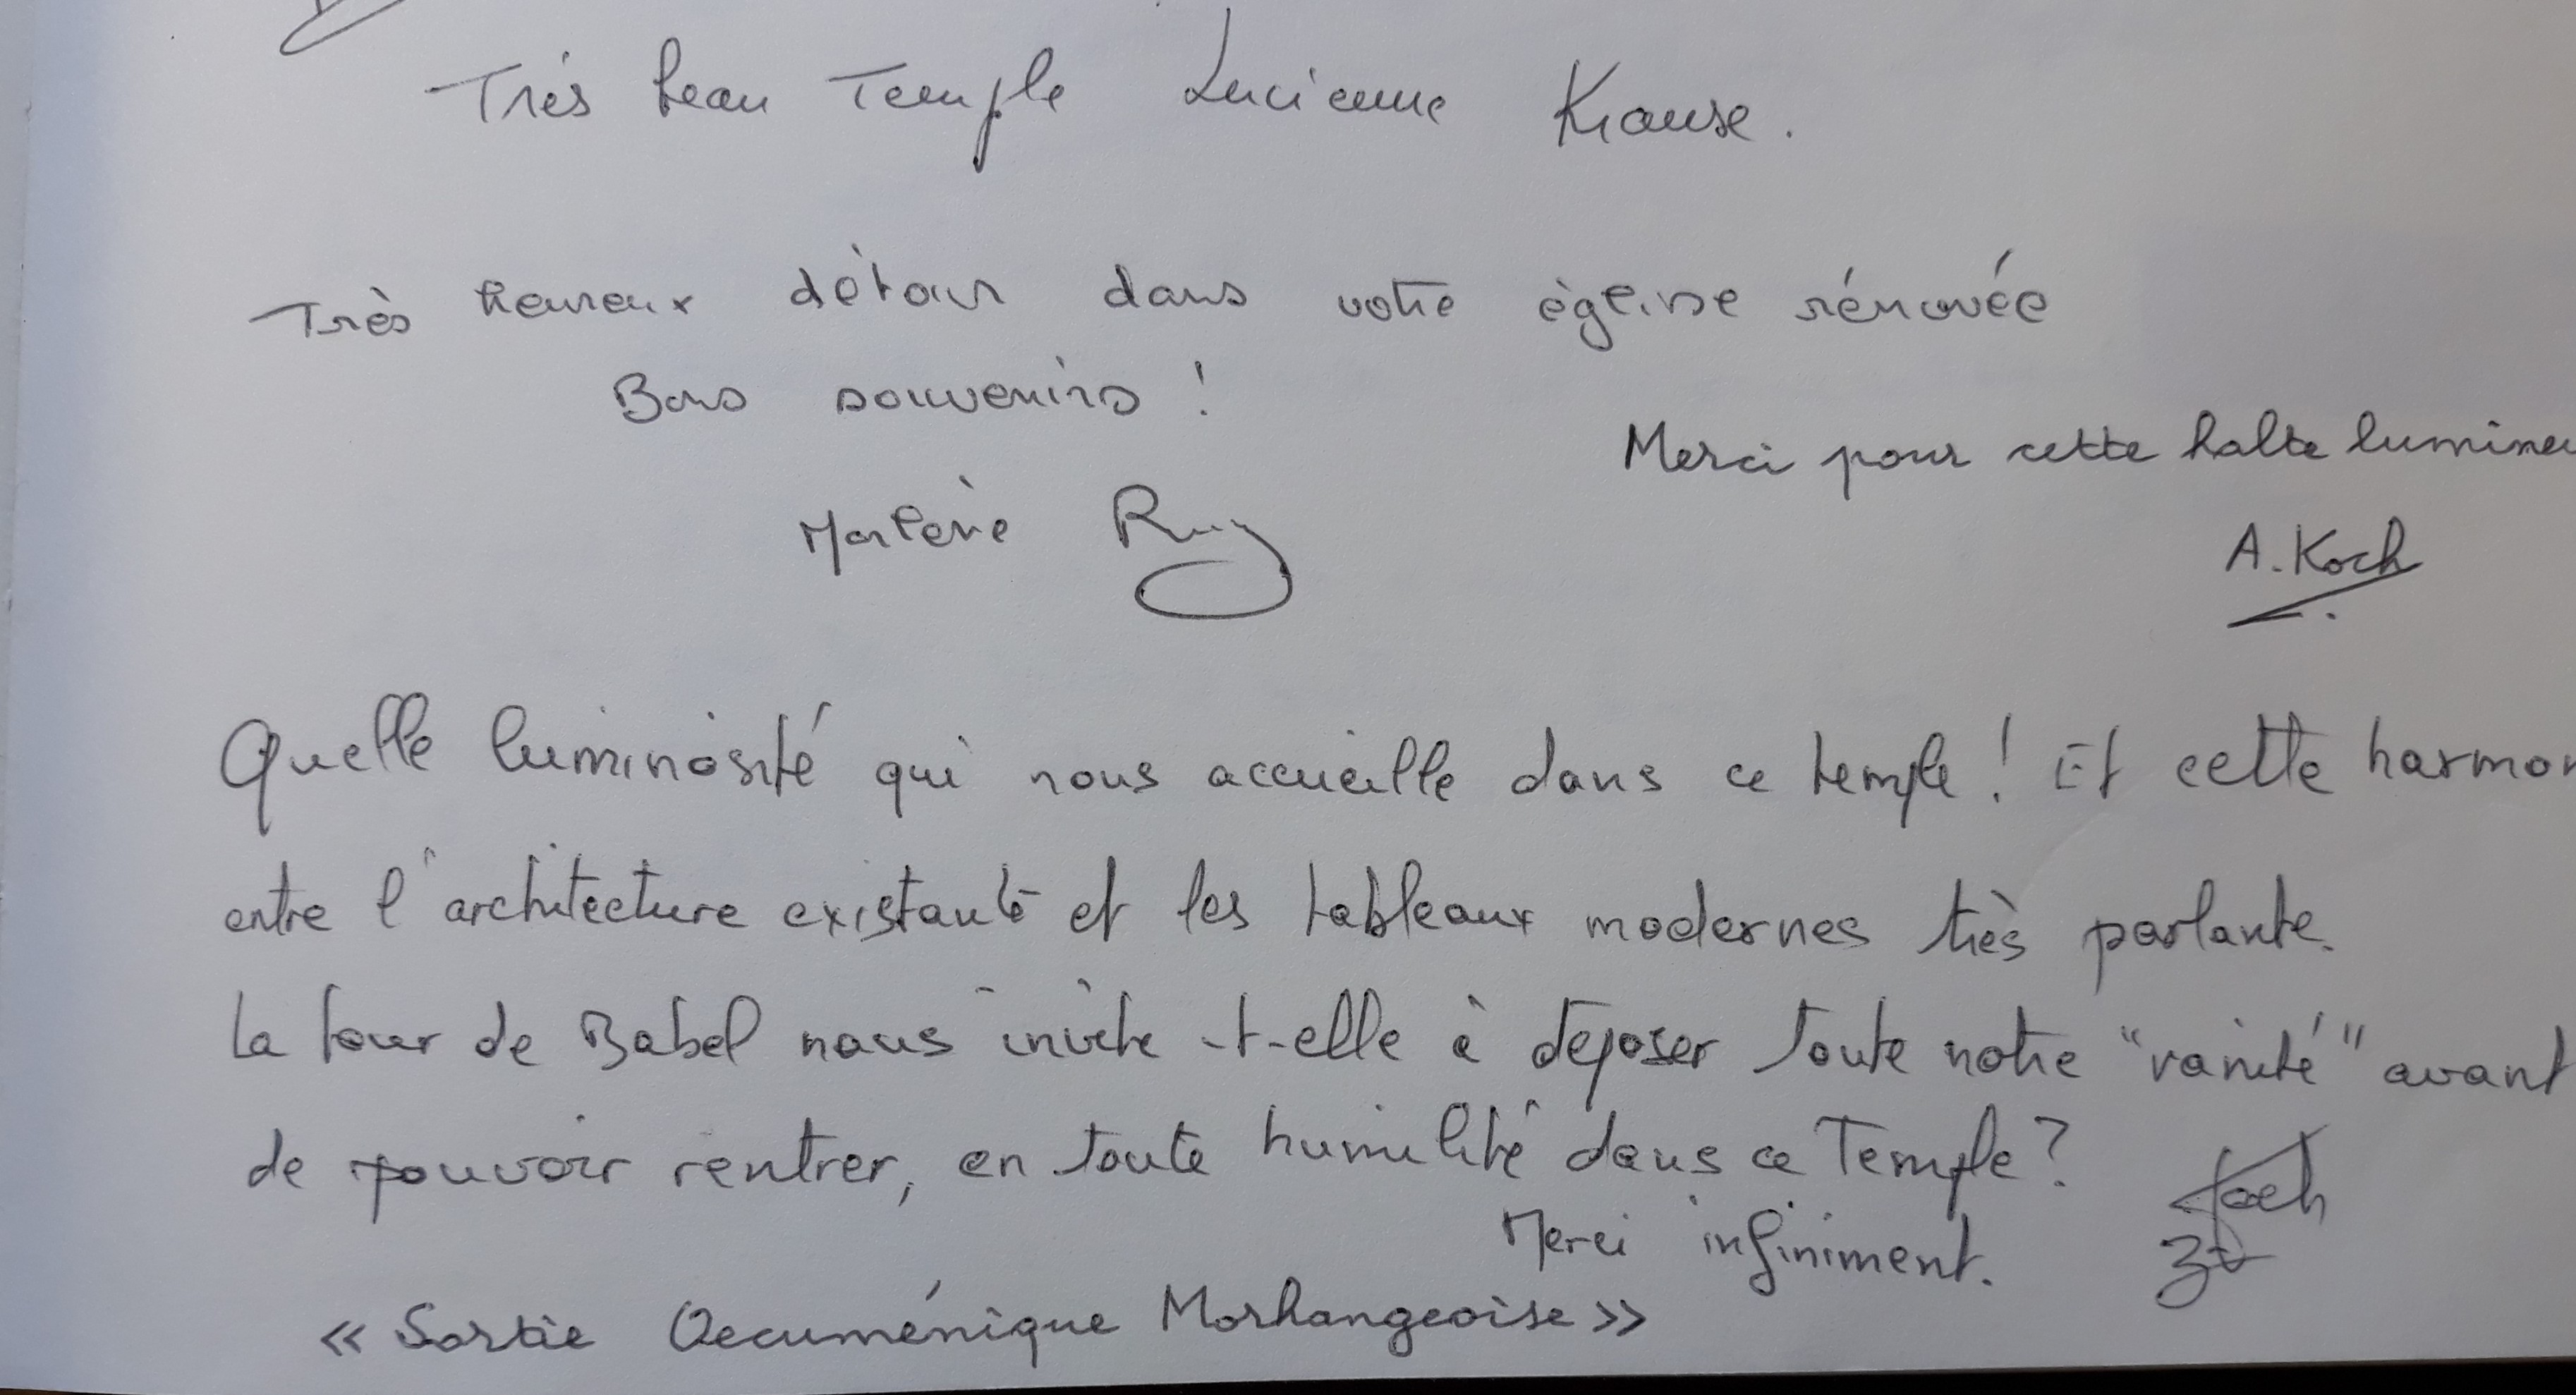 Très beau Temple Lucienne Krause.
Très heureux détour dans votre église rénovée
Bons souvenirs !
Merci pour cette halte lumineu
Marlène
A. Koch
Quelle luminosité qui nous accueille dans ce temple ! Et cette harmon
entre l'architecture existante et les tableaux modernes très parlante.
La tour de Babel nous invite-t-elle à déposer toute notre "vanité" avant
de pouvoir rentrer, en toute humilité dans ce Temple ?
Koch
Merci infiniment.
« Sortie Oecuménique Morhangeoise »